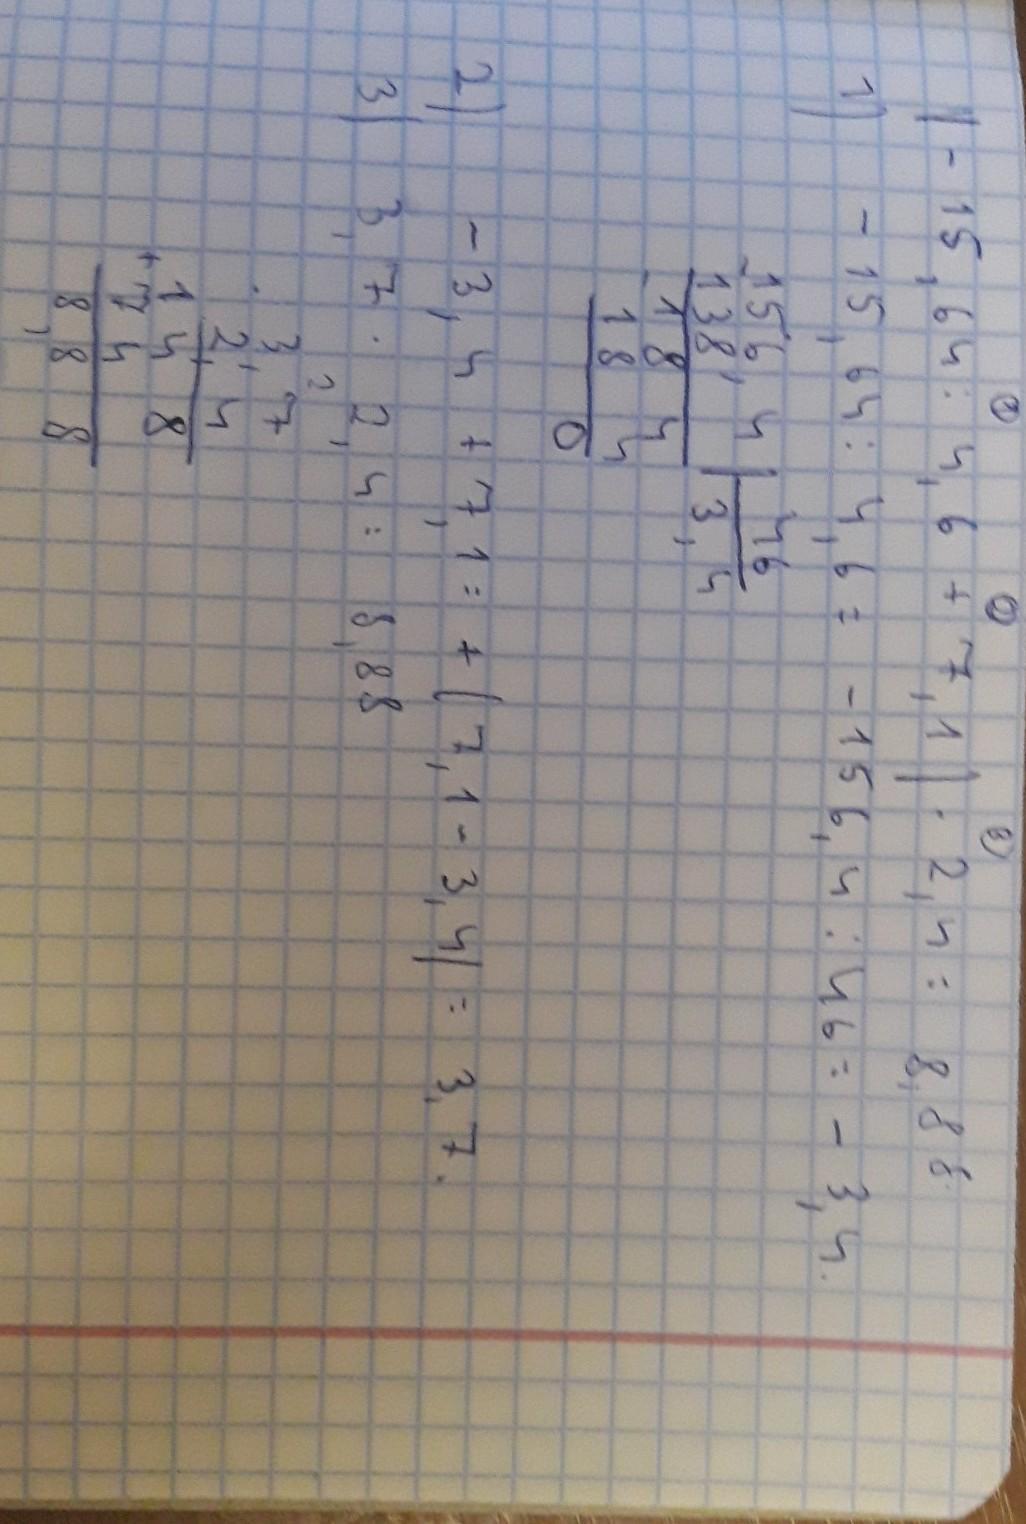 ① ② ③
(-15,64:4,6+7,1)·2,4= 8,88
1) -15,64:4,6= -156,4:46= -3,4.
-156,4 | 46
138 | 3,4
-184
184
0
2) -3,4+7,1=+(7,1-3,4)= 3,7.
3) 3,7·2,4= 8,88
2
· 3,7
2,4
148
+74
8,88